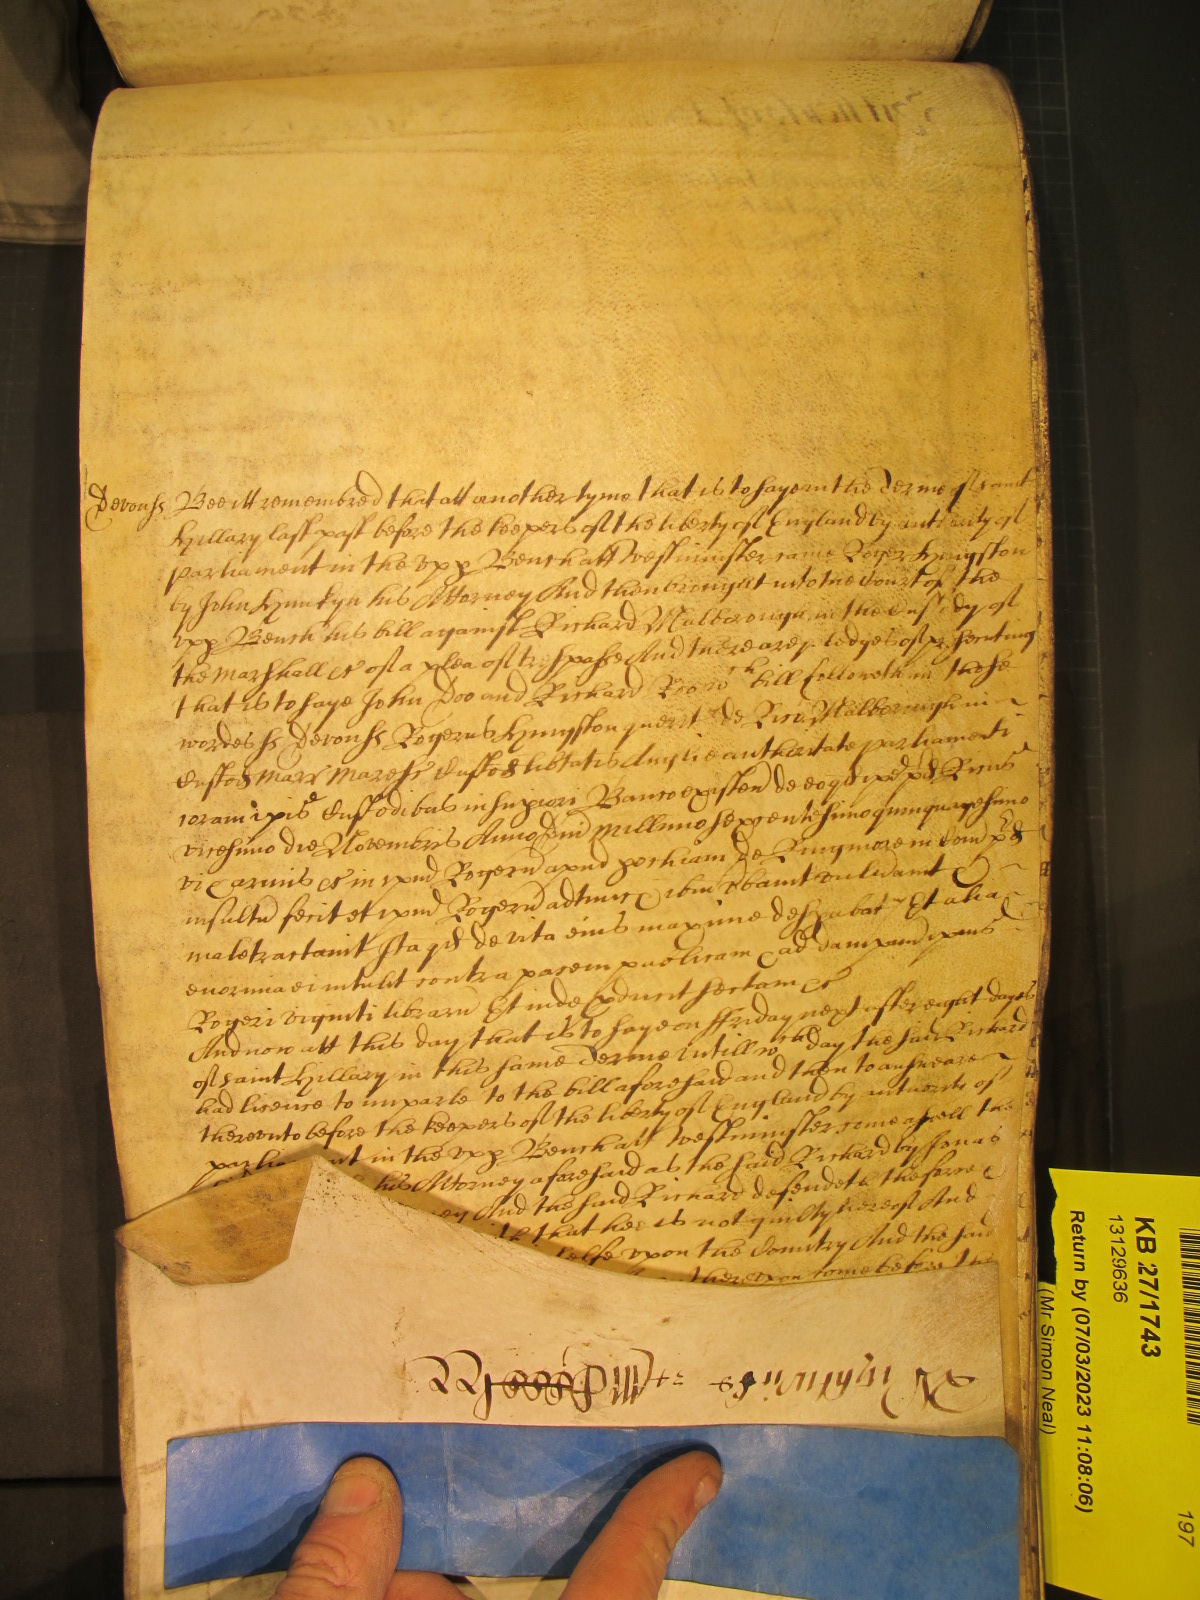 Devonss Bee itt remembred that att another tyme that is to saye in the Terme of Saint
Hillary last past before the keepers of the liberty of England by authority of
parliament in the upp Bench att Westminster came Roger Kyngston
by John Hunkyn his Attorney And then brought into the Court of the
upp Bench his bill against Richard Malborough in the Custody of
the Marshall &c of a plea of trespasse And there are pledges of prsecuting
that is to saye John Doo and Richard Roo wch bill followeth in these
wordes ss Devonss Rogerus Kyngston queritr de Rico Malborough in
Custod Marr Maress Custod libtatis Anglie authoritate parliamenti
coram ipis Custodibus in Supiori Banco existen de eo qd ipe pd Ricus
vicesimo die Novembris Anno Dni Millimo sexcentesimo quinquagesimo
vi & armis &c in ipm Rogerum apud pochiam de Ringmore in Com pd
insultu fecit et ipm Rogeru adtunc & ibm vbavit vulnavit &
maletractavit Ita qd de vita eius maxime despabat Et alia
enormia ei intulit contra pacem publicam & ad dampnum ipius
Rogeri viginti libraru Et inde pducit sectam &c
And now att this day that is to saye on Ffriday next after eight dayes
of Saint Hillary in this same Terme untill wch day the said Richard
had licence to imparle to the bill aforesaid and then to answeare
thereunto before the keepers of the liberty of England by authority of
parliament in the upp Bench att Westminster came aswell the
his Attorney aforesaid as the said Richard by Jonas
And the said Richard defendeth the force &
that hee is not guilty thereof And
selfe upon the Country And the said
thereupon come before the
KB 27/1743
13129636
Return by (07/03/2023 11:08:06)
(Mr Simon Neal)
197